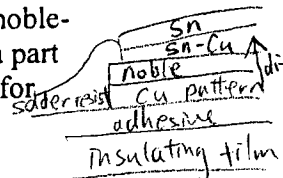 noble-
part
for
Sn
Sn-Cu
noble
soder resist Cu pattern
adhesive
insulating film